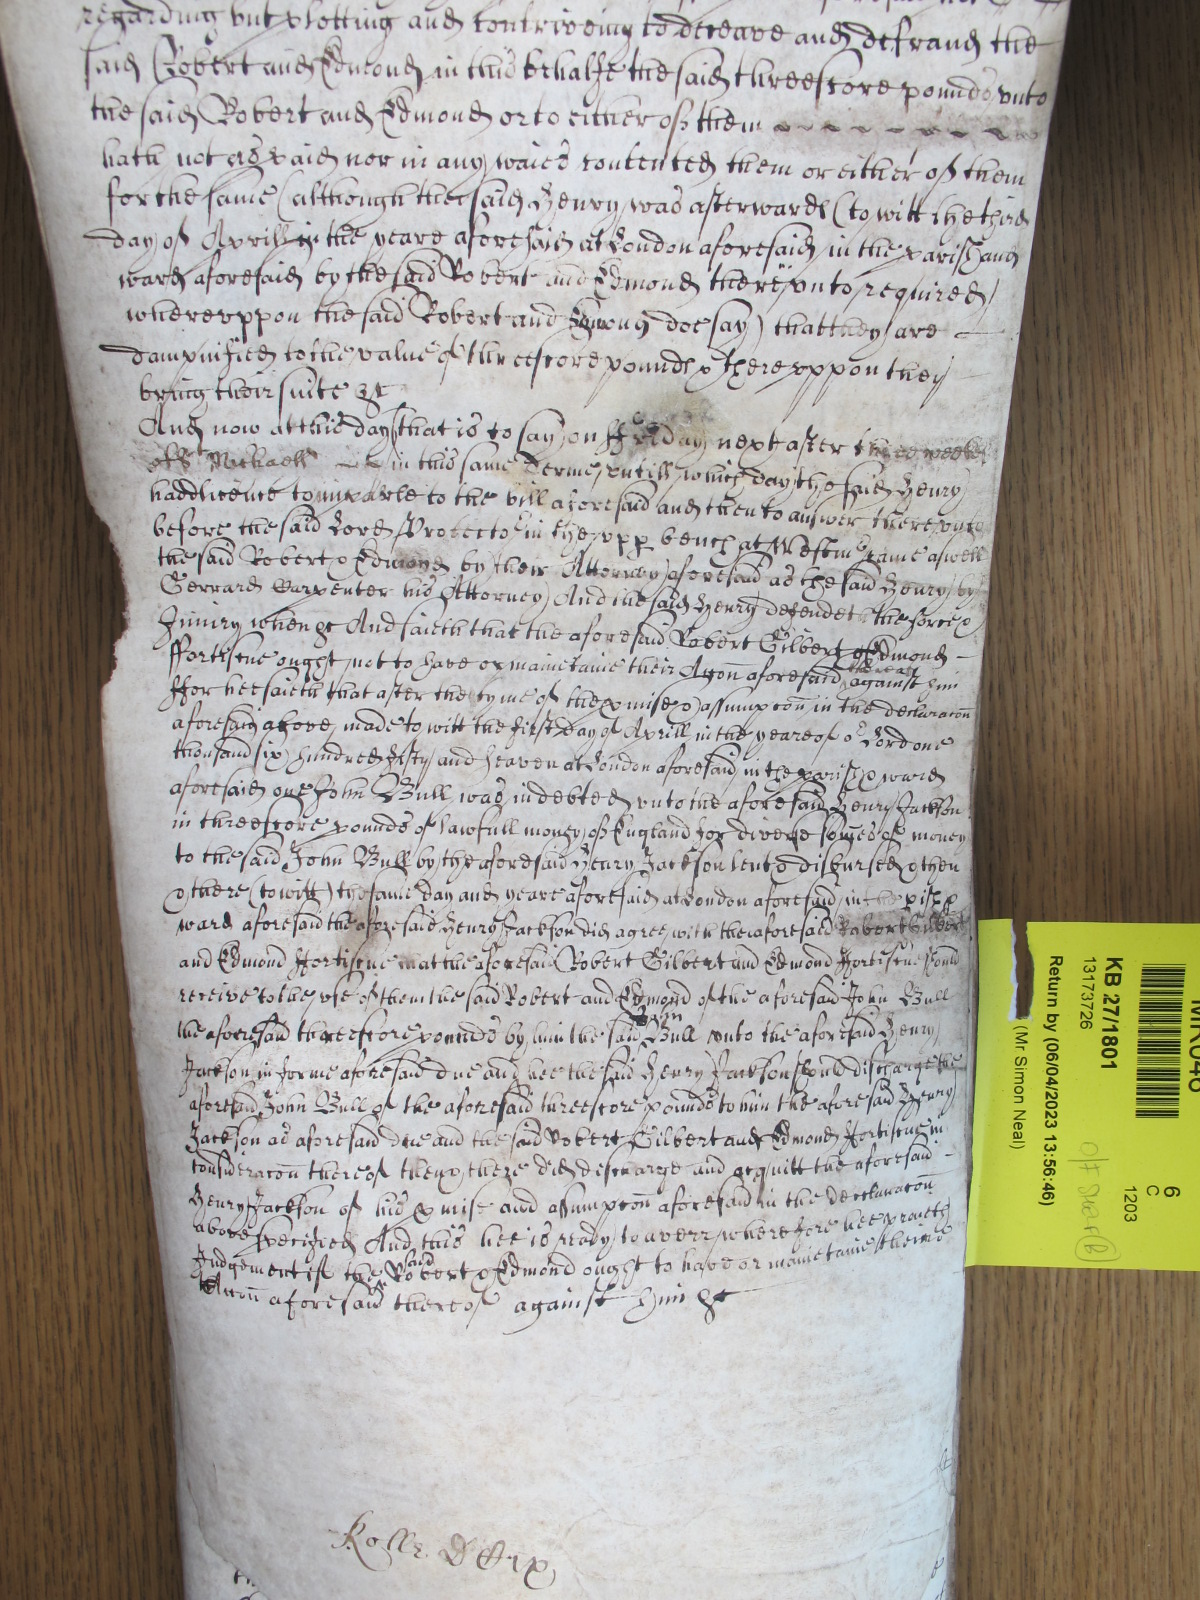 regarding but plotting and contriveing to deceave and defraud the
said Robert and Edmond in this behalfe the said threescore pounds unto
the said Robert and Edmond or to either of them
hath not as paid nor in any waies contented them or either of them
for the same (although the said Henry was afterwards (to witt the third
day of Aprill in the yeare aforesaid at London aforesaid in the parish and
ward aforesaid by the said Robert and Edmond thereunto required)
whereuppon the said Robert and Edmond doe say) that they are
dampnified to the value of threescore pounds & thereuppon they
bring their suite &c
And now at this day (that is to say) on ffriday next after three weekes
of St Michaell in this same Terme, untill which day the said Henry
hadd licence to imparle to the bill aforesaid and then to answer thereunto
before the said Lord Protector in the upp bench at Westmr came aswell
the said Robert & Edmond by their Attorney aforesaid as the said Henry by
Gerrard Carpenter his Attorney) And the said Henry defendeth the force &
Iniury when &c And saieth that the aforesaid Robert Gilbert & Edmond
ffortiscue ought not to have or maintaine their Accon aforesaid thereof against him
ffor hee saieth that after the tyme of the pmise & assumpcon in the declaracon
aforesaid above made to witt the first day of Aprill in the yeare of or Lord one
thousand six hundred fifty and seaven at London aforesaid in the parish & ward
aforesaid one John Bull was indebted unto the aforesaid Henry Jackson
in threescore pounds of lawfull money of England for diverse somes of money
to the said John Bull by the aforesaid Henry Jackson lent & disbursed & then
& there (to witt) the same day and yeare aforesaid at London aforesaid in the pish &
ward aforesaid the aforesaid Henry Jackson did agree with the aforesaid Robert Gilbert
and Edmond ffortiscue that the aforesaid Robert Gilbert and Edmond ffortiscue should
receive to the use of them the said Robert and Edmond of the aforesaid John Bull
the aforesaid threescore pounds by him the said John Bull unto the aforesaid Henry
Jackson in forme aforesaid due and hee the said Henry Jackson should discharge the
aforesaid John Bull of the aforesaid threescore pounds to him the aforesaid Henry
Jackson as aforesaid due and the said Robert Gilbert and Edmond ffortiscue in
consideracon thereof then & there did discharge and acquitt the aforesaid
Henry Jackson of his pmise and assumpcon aforesaid in the declaracon
above specified And this hee is ready to averr, wherefore hee prayeth
Judgement if the said Robert & Edmond ought to have or maintaine theire
Accon aforesaid thereof against him &c
MR046
KB 27/1801
13173726
Return by (06/04/2023 13:56:46)
(Mr Simon Neal)
6
C
1203